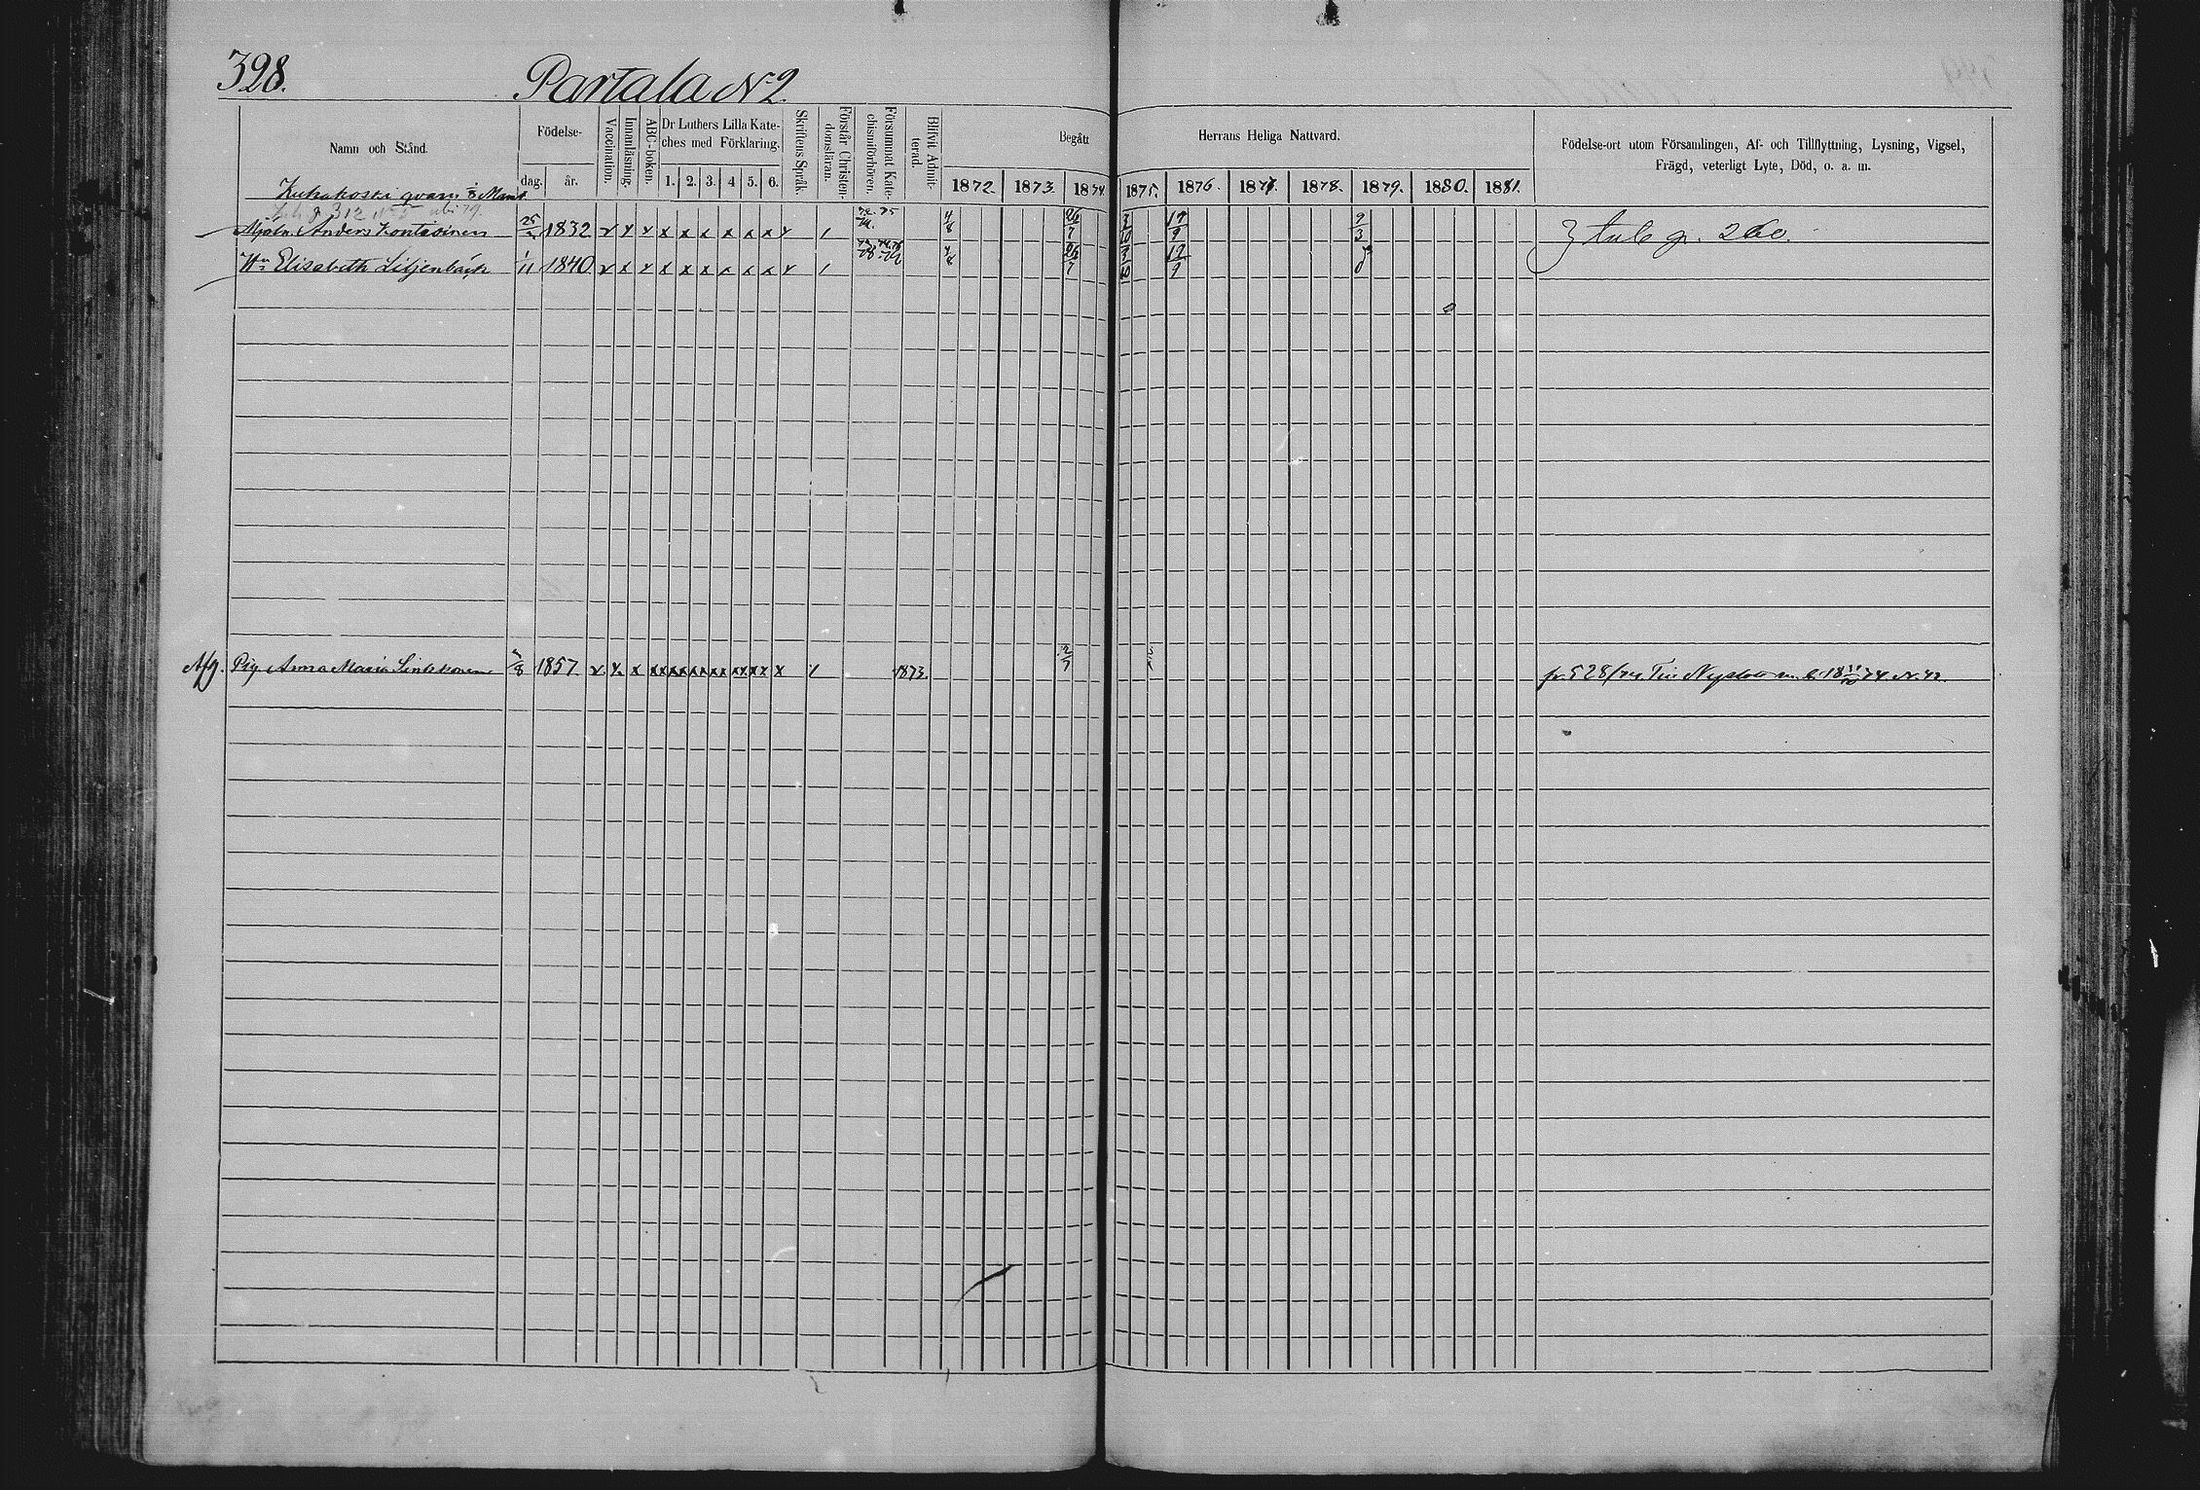 328.
Partala N2
Namn och Stånd.
Födelse-
dag. år.
Vaccination.
Innanläsning.
ABC-boken.
Dr Luthers Lilla Kate-
ches med Förklaring.
1. 2. 3. 4 5. 6.
Skriftens Språk.
Förstår Christen-
domsläran.
Försummat Kate-
chismiförhören.
Blifvit Admit-
terad.
Begått Herrans Heliga Nattvard.
1872. 1873. 1874 1875. 1876. 1877. 1878. 1879. 1880. 1881.
Födelse-ort utom Församlingen, Af- och Tillflyttning, Lysning, Vigsel,
Frägd, veterligt Lyte, Död, o. a. m.
qvarn
312
Anders Kontiainen 25 1832 v x x x x x x x x x 1 4/8 26/7 3/10 17/9 9/3 260.
Hu Elisabeth Liljenbäck 1/11 1840 v x x x x x x x x x 1 4/8 26/7 3/10 17/9
Afg. Pig. Anna Maria 1857 v x x xx xx xx xx xx xx x 1 1873. 2/7 Nyslott